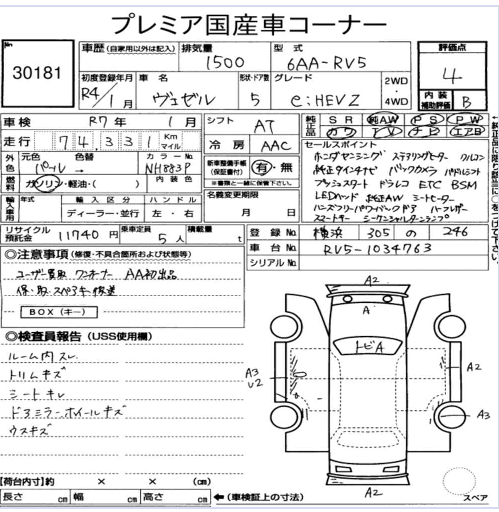 プレミア国産車コーナー
No
30181
車歴(自家用以外は記入)
排気量
1500
型式
6AA-RV5
評価点
4
内装
補助評価
B
初度登録年月
R4年1月
車名
ヴェゼル
形状・ドア数
5
グレード
e:HEVZ
2WD
・
4WD
車検 R7年1月
走行 74,331 Km マイル
シフト
AT
冷房
AAC
純正品
SR 純AW PS PW
カワ TV ナビ エアB
外色
元色
パール
色替
→
カラーNo
NH883P
燃料
ガソリン・軽油・( )
内装色
新車整備手帳
(保証書付)
有・無
※書類と一緒に保管です。
輸入車用
年式
輸入区分
ディーラー・並行
ハンドル
左・右
名義変更期限
月 日
セールスポイント
ホンダセンシング ステアリングヒーター クルコン
純正9インチナビ バックカメラ パドルシフト
プッシュスタート ドラレコ ETC BSM
LEDヘッド 純正AW シートヒーター
ハーフレザー
スマートキー シーケンシャルターンランプ
純正品に限り該当に○をつけて下さい。
リサイクル
預託金
11740円
乗車定員
5人
積載量
t
登録No
横浜 305 の 246
車台No
RV5-1034763
シリアルNo
◎注意事項(修復・不具合箇所および状態等)
ユーザー買取 ワンオーナー AA初出品
保・取・スペアキー後送
BOX(キー)
◎検査員報告(USS使用欄)
ルーム内スレ
トリムキズ
シートキレ
ドアミラーホイールキズ
ウスキズ
A2
A
トビA
A3
U2
A2
A3
A2
スペア
【荷台内寸】約 × × (cm)
長さ cm 幅 cm 高さ cm ←(車検証上の寸法)